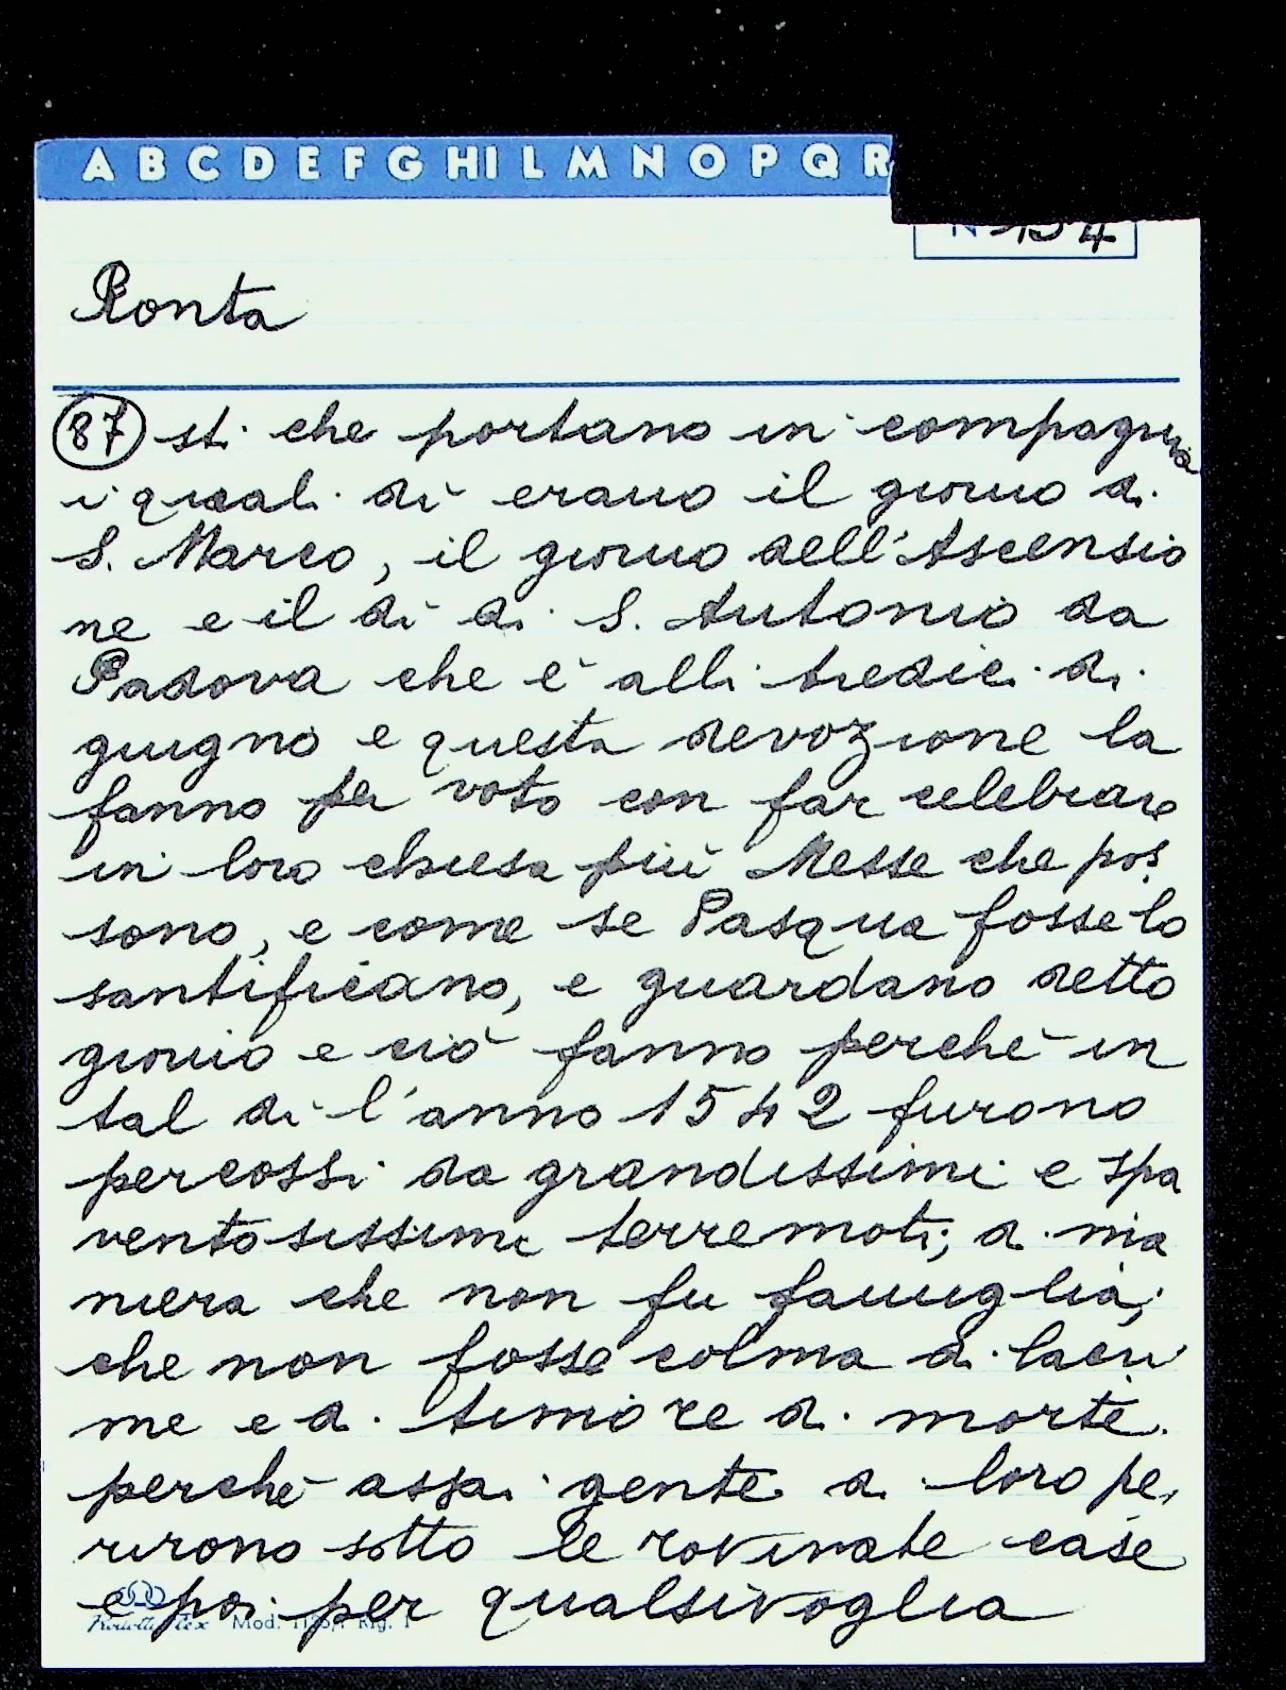 A B C D E F G HI L M N O P Q R
Ronta
87 sti che portano in compagnia
i quali dì erano il giorno di
S. Marco, il giorno dell'Ascensio
ne e il dì di S. Antonio da
Padova che è alli tredici di
giugno e questa devozione la
fanno per voto con far celebrare
in loro chiesa più Messe che pos
sono, e come se Pasqua fosse lo
santificano, e guardano detto
giorno e ciò fanno perchè in
tal dì l'anno 1542 furono
percossi da grandissimi e spa
ventosissimi terremoti, di ma
niera che non fu famiglia,
che non fosse colma di lacri
me e di timore di morte.
perchè assai gente di loro pe
rirono sotto le rovinate case
e poi per qualsivoglia
Mod.